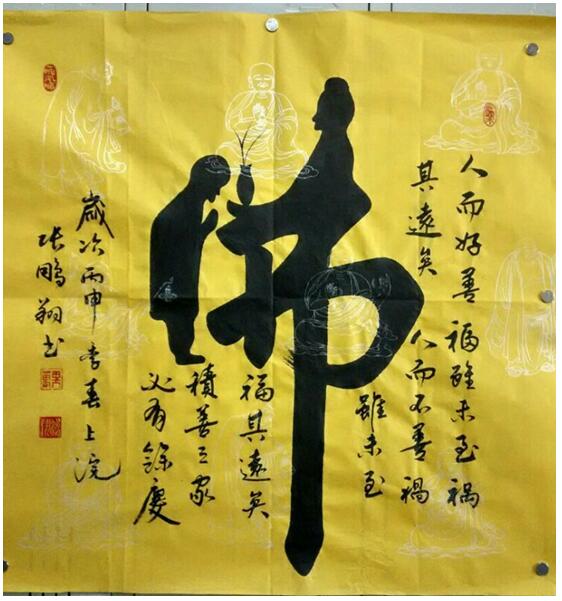 佛
人而好善福雖未至禍
其遠矣人而不善禍
雖未至
福其遠矣
積善之家
必有餘慶
歲次丙申季春上浣
張鵬翔书